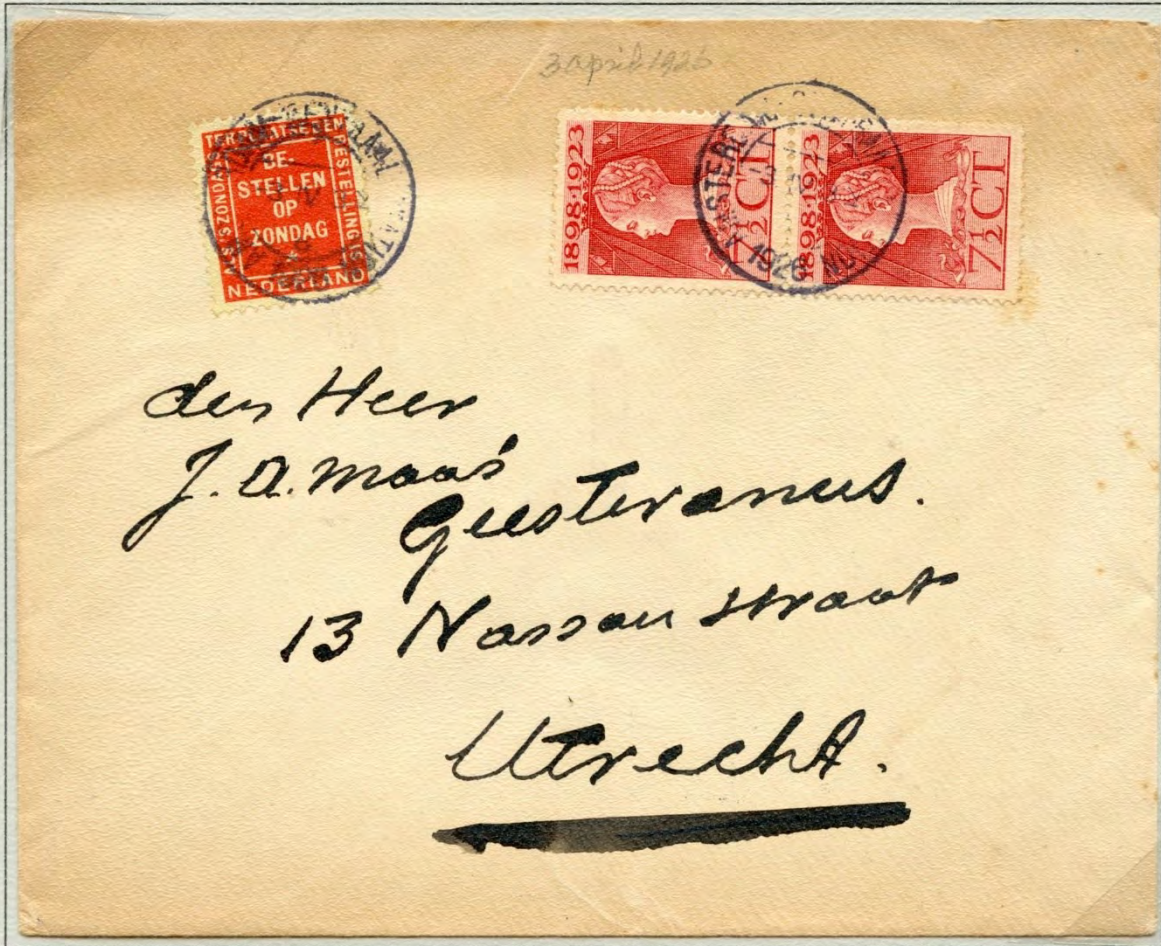 3 april 1926
BE-
STELLEN
OP
ZONDAG
NEDERLAND
1898·1923
7½ CT
1898·1923
7½ CT
1926
den Heer
J. A. Maas
Geesteranus.
13 Nassau straat
Utrecht.